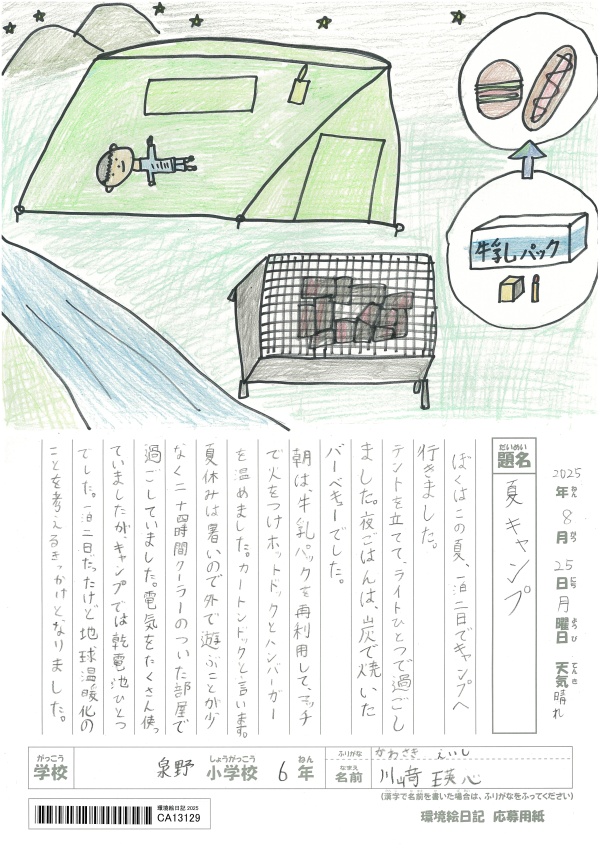 牛乳しパック
2025年 8月 25日 月曜日 天気 晴れ
ねん がつ にち ようび てんき
だいめい
題名
夏キャンプ
ぼくはこの夏、一泊二日でキャンプへ
行きました。
テントを立てて、ライトひとつで過ごし
ました。夜ごはんは、炭で焼いた
バーベキューでした。
朝は、牛乳パックを再利用して、マッチ
で火をつけホットドックとハンバーガー
を温めました。カートンドックと言います。
夏休みは暑いので外で遊ぶことが少
なく二十四時間クーラーのついた部屋で
過ごしていました。電気をたくさん使っ
ていましたが、キャンプでは乾電池ひとつ
でした。一泊二日だったけど地球温暖化の
ことを考えるきっかけとなりました。
がっこう しょうがっこう ねん
学校 泉野 小学校 6年
ふりがな かわさき えいし
なまえ
名前 川﨑 瑛心
(漢字で名前を書いた場合は、ふりがなをふってください)
環境絵日記 2025
CA13129
環境絵日記 応募用紙